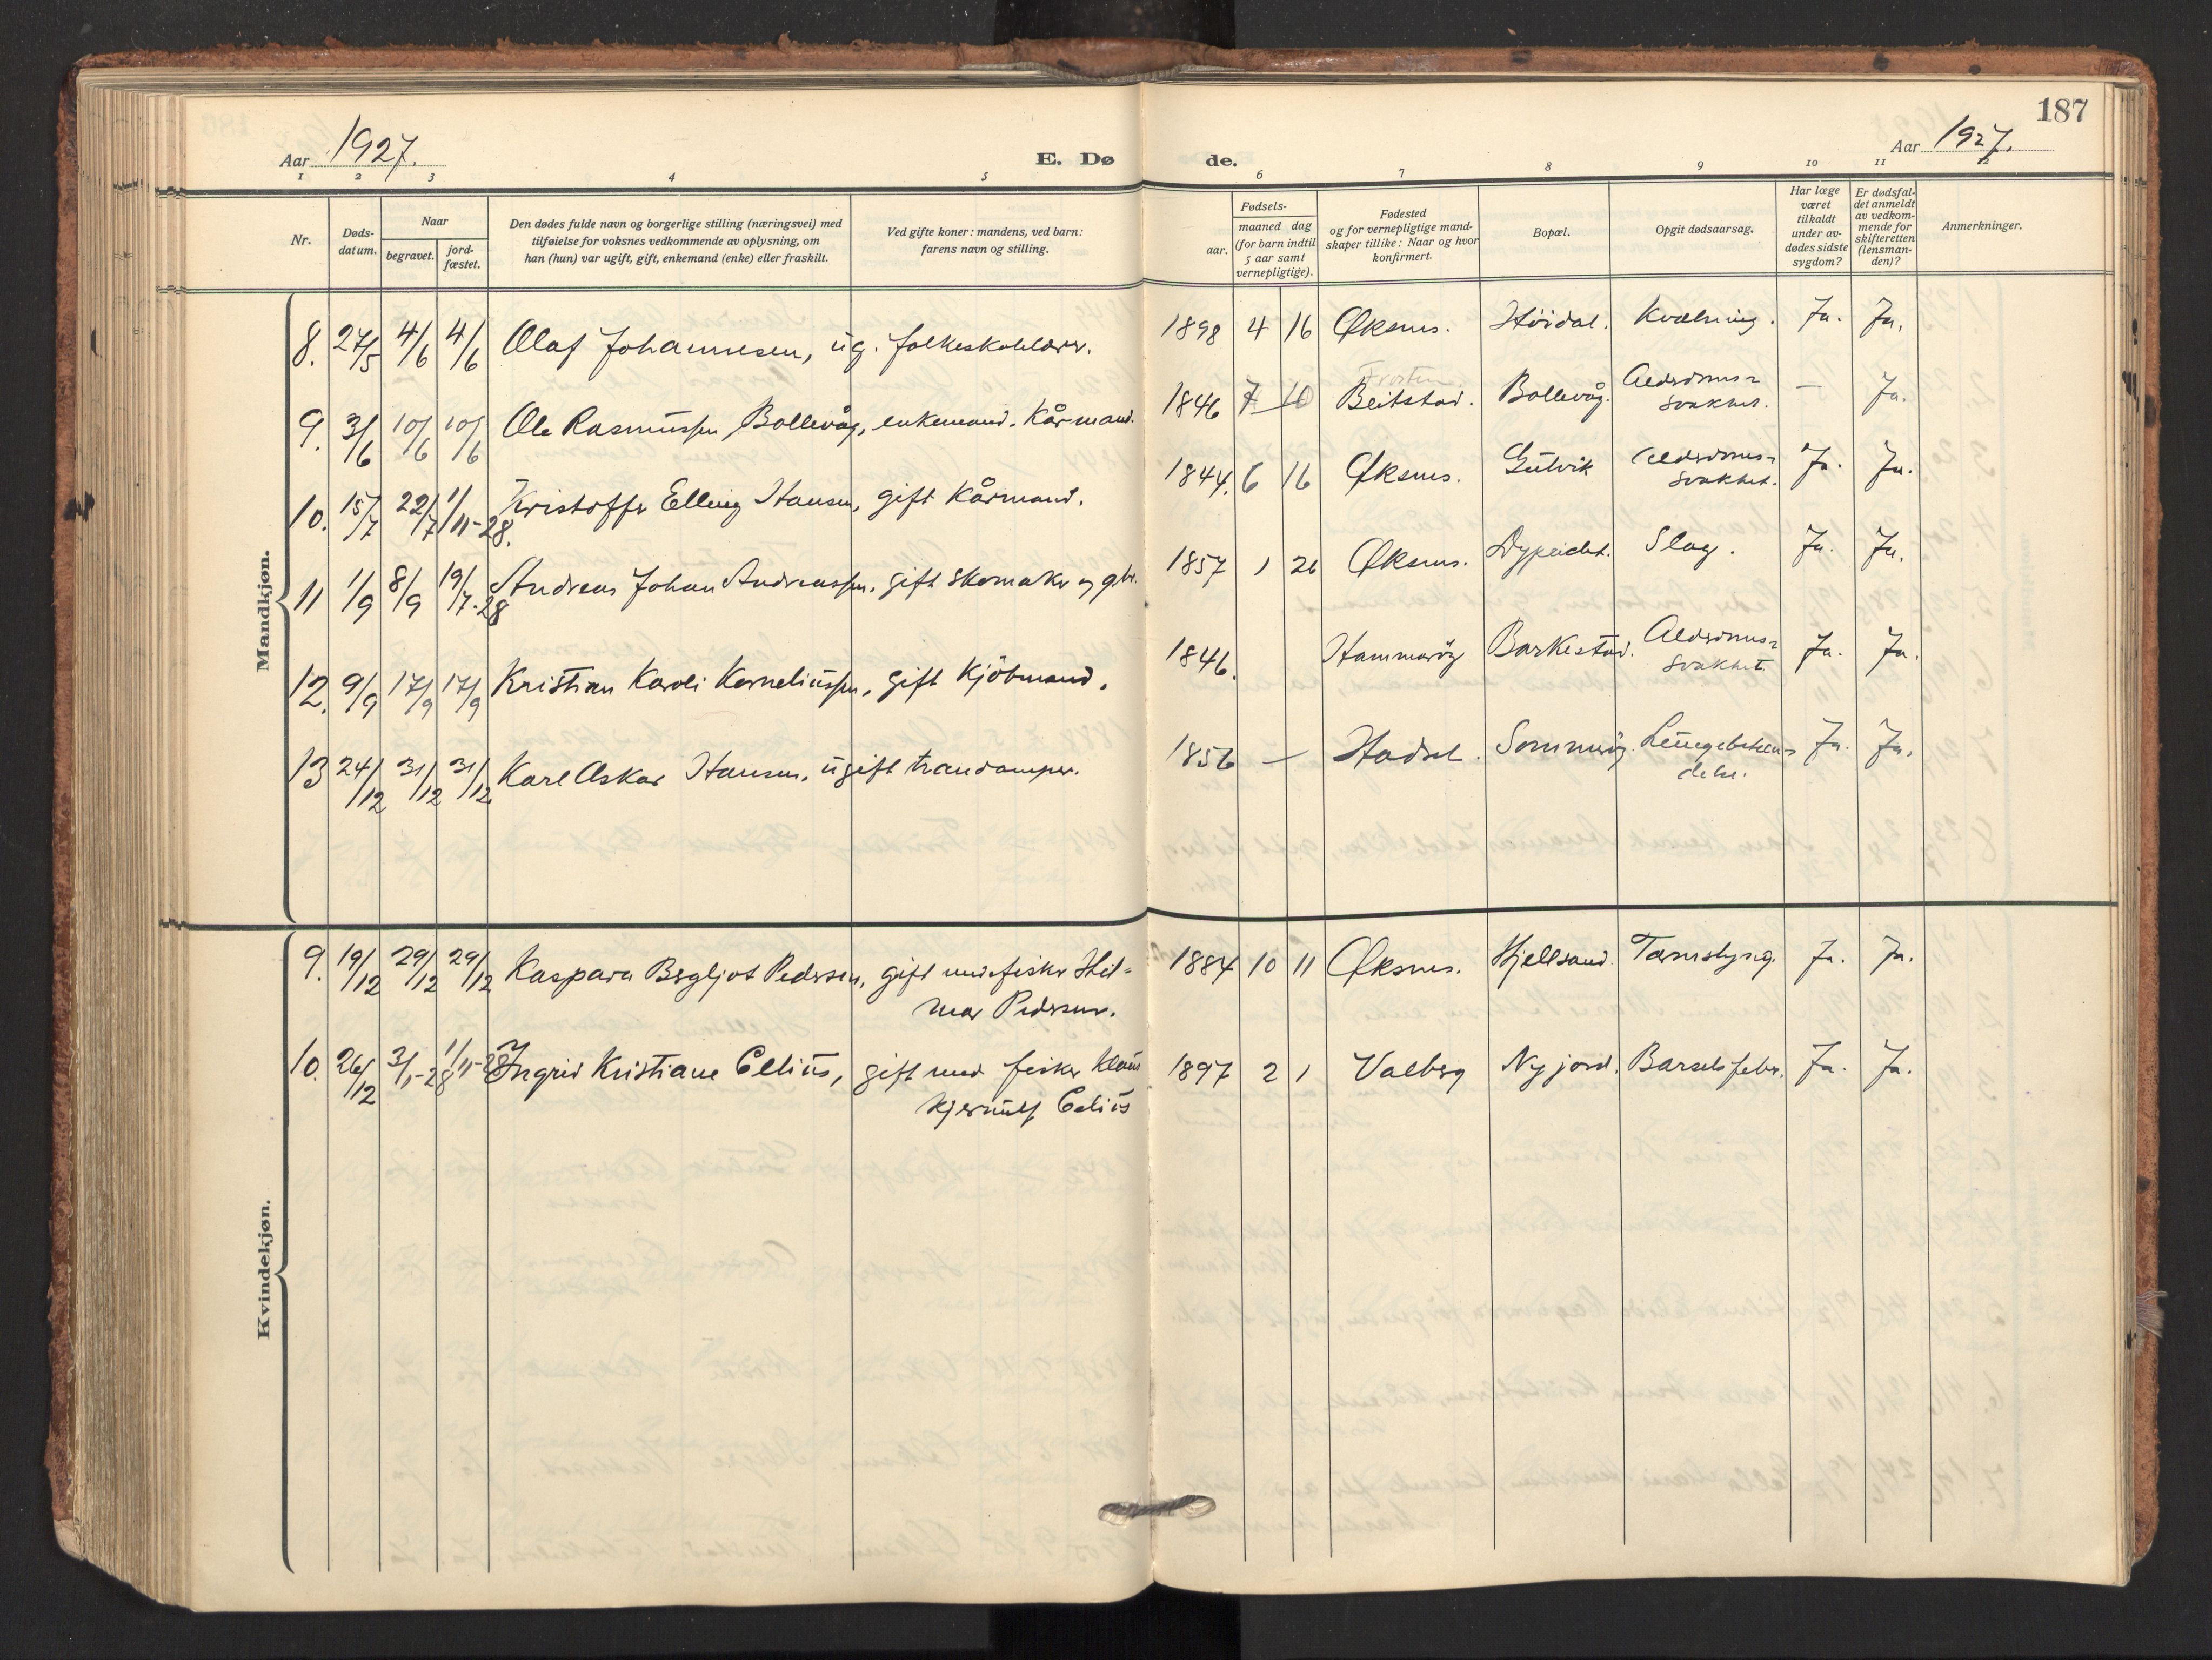 187
Aar 1927.
E. Dø
de.
Aar 1927.
1 2 3 4 5 6 7 8 9 10 11 12
Nr.
Døds-
datum.
Naar
begravet.
jord-
fæstet.
Den dødes fulde navn og borgerlige stilling (næringsvei) med
tilføielse for voksnes vedkommende av oplysning, om
han (hun) var ugift, gift, enkemand (enke) eller fraskilt.
Ved gifte koner: mandens, ved barn:
farens navn og stilling.
Fødsels-
aar.
maaned dag
(for barn indtil
5 aar samt
vernepligtige).
Fødested
og for vernepligtige mand-
skaper tillike: Naar og hvor
konfirmert.
Bopæl.
Opgit dødsaarsag.
Har læge
været
tilkaldt
under av-
dødes sidste
sygdom?
Er dødsfal-
det anmeldt
av vedkom-
mende for
skifteretten
(lensman-
den)?
Anmerkninger.
Mandkjøn.
8. 27/5 4/6 4/6 Olaf Johannesen, ug. folkeskolelærer. 1898 4 16 Øksnes. Høidal. Kvælning. Ja. Ja.
Trosten
9. 3/6 10/6 10/6 Ole Rasmussen Bollevåg, enkemand. Kårmand. 1846 7 10 Beitstad. Bollevåg. Alderdoms-
svakhet. — Ja.
10. 15/7 22/7 1/11-28. Kristoffer Elling Hansen, gift Kårmand. 1844. 6 16 Øksnes. Gulvik Alderdoms-
svakhet. Ja. Ja.
11 1/9 8/9 19/7-28 Andreas Johan Andreassen, gift skomaker og gbr. 1857 1 26 Øksnes. Dypeidet. Slag. Ja. Ja.
12. 9/9 17/9 17/9 Kristian Karoli Korneliussen, gift Kjöbmand. 1846. Hammeröy Barkestad. Alderdoms-
svakhet Ja. Ja.
13 24/12 31/12 31/12 Karl Oskar Hansen, ugift trandamper. 1856 — Hadsel. Sommeröy. Lungebeten-
delse. Ja. Ja.
Kvindekjøn.
9. 19/12 29/12 29/12 Kaspara Bergljot Pedersen, gift med fisker Hil-
mar Pedersen. 1884 10 11 Øksnes. Hjellsand. Tarmslyng. Ja. Ja.
10. 26/12 3/1-28 1/11-28 Ingrid Kristiane Celius, gift med fisker Klaus
Hjernulf Celius 1897 2 1 Valberg Ny jord. Barselsfeber. Ja. Ja.